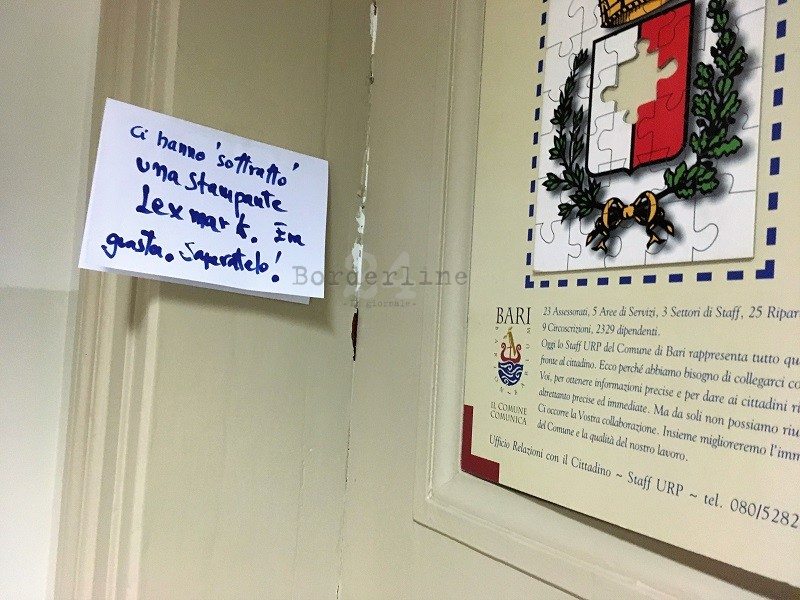 Ci hanno 'sottratto'
una stampante
Lexmark. Era
guasta. Sapratelo!
Borderline
24
- Il giornale -
BARI
IL COMUNE
COMUNICA
23 Assessorati, 5 Aree di Servizi, 3 Settori di Staff, 25 Ripar
9 Circoscrizioni, 2329 dipendenti.
Oggi lo Staff URP del Comune di Bari rappresenta tutto qu
fronte al cittadino. Ecco perché abbiamo bisogno di collegarci co
Voi, per ottenere informazioni precise e per dare ai cittadini ri
altrettanto precise ed immediate. Ma da soli non possiamo riu
Ci occorre la Vostra collaborazione. Insieme miglioreremo l'imm
del Comune e la qualità del nostro lavoro.
Ufficio Relazioni con il Cittadino ~ Staff URP ~ tel. 080/5282